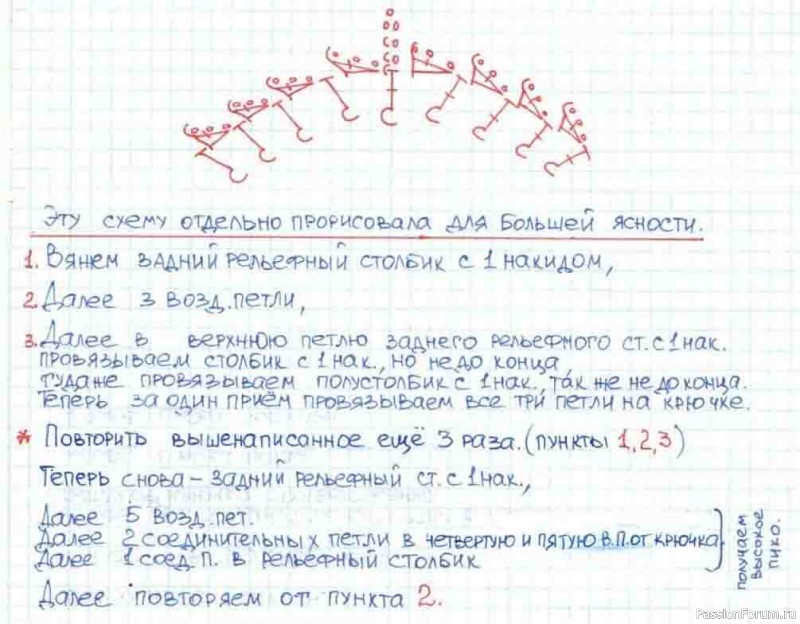 Эту схему отдельно прорисовала для большей ясности.
1. Вянем задний рельефный столбик с 1 накидом,
2. Далее 3 возд.петли,
3. Далее в верхнюю петлю заднего рельефного ст. с 1 нак.
провязываем столбик с 1 нак., но не до конца,
туда же провязываем полустолбик с 1 нак., так же не до конца.
Теперь за один приём провязываем все три петли на крючке.
* Повторить вышенаписанное ещё 3 раза. (пункты 1,2,3)
Теперь снова - задний рельефный ст. с 1 нак.,
Далее 5 возд.пет.
Далее 2 соединительных петли в четвертую и пятую в.п. от крючка
Далее 1 соед.п. в рельефный столбик
получаем
высокое
пико.
Далее повторяем от пункта 2.
PassionForum.ru